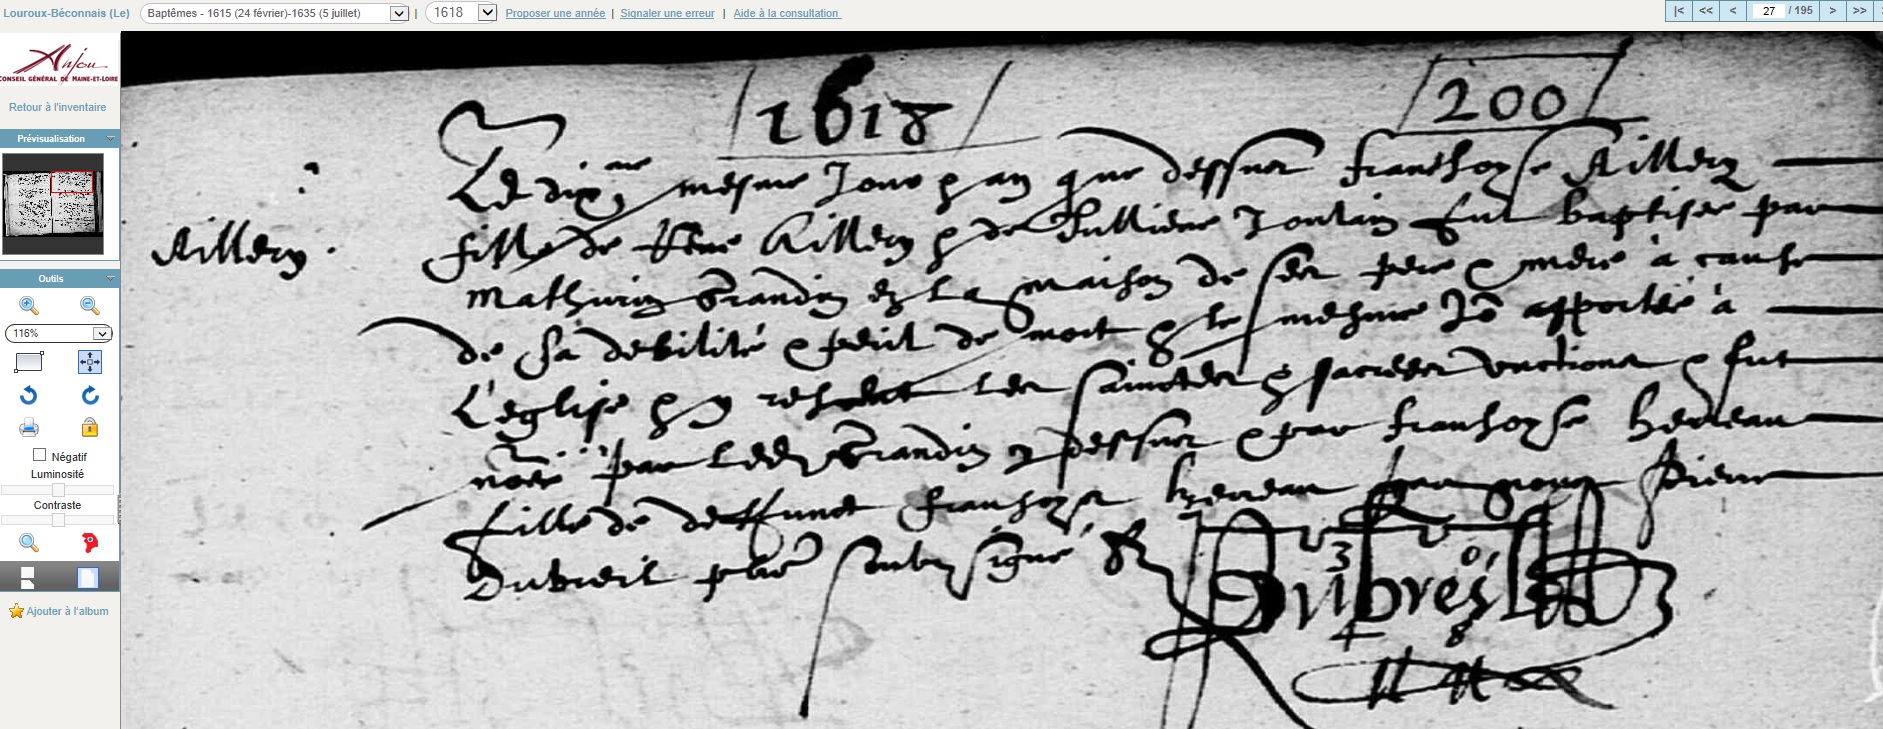 Louroux-Béconnais (Le)
Baptêmes - 1615 (24 février)-1635 (5 juillet) | 1618 Proposer une année | Signaler une erreur | Aide à la consultation
|< << < 27 / 195 > >>
Anjou
CONSEIL GÉNÉRAL DE MAINE-ET-LOIRE
Retour à l'inventaire
Prévisualisation
Outils
116%
Négatif
Luminosité
Contraste
Ajouter à l'album
1618
200
Le dix me mesme Jour & an que dessus franchoyse Aillery
Aillery
fille de Rene Aillery & de Julliene Joulain fut baptisee par
Mathurin Grandin en la maison de ses pere & mere à cause
de sa debilité & peril de mort & le mesme Jo apportée à
L'eglise & les sainctes & sacrees unctions & fut
par led Grandin dessus & par franchoyse
fille de deffunct franchoys par nous Pierre
Dubreil soubzsigné
Dubreil